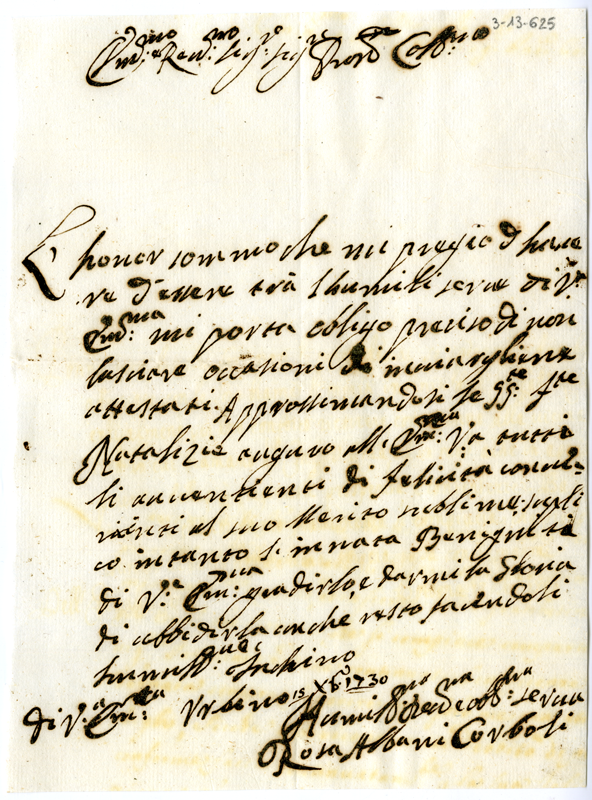 3-13-625
Em:mo e Rev:mo Sig:r Sig:r Pron: Coll:mo
L'honor sommo che mi pregio d'have
re d'essere trà l'humili serve di V.a
Em:ma mi porta obligo preciso di non
lasciare occasioni di inviargliene
attestati. Approssimandosi le SS:te fste
Natalizie auguro all Em:ma V.a tutti
li avvenimenti di felicità convi-
nienti al suo Merito sublime, supli
co intanto l'innata Benignità
di V.a Em:ma gradirlo, e darmi la Gloria
di obbidirla anche, resto facendoli
humiliss:mo Inchino
di V.a Em:za Urbino 15 Xbre 1730
Humiss:ma Dev:ma e obb:ma serva
Rosa Albani Corboli